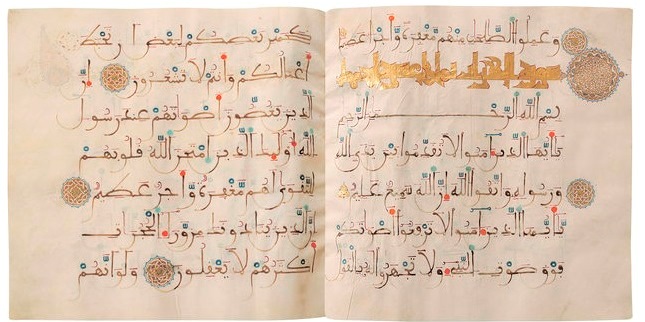 وعملوا الصلحت منهم مغفرة واجرا عظيما
سورة الحجرات
بسم الله الرحمن الرحيم
يأيها الذين ءامنوا لا تقدموا بين يدي الله
ورسوله واتقوا الله ان الله سميع عليم
يأيها الذين ءامنوا لا ترفعوا اصوتكم
فوق صوت النبيء ولا تجهروا له بالقول
كجهر بعضكم لبعض ان تحبط
اعملكم وانتم لا تشعرون ان
الذين يغضون اصوتهم عند رسول
الله اوليك الذين امتحن الله قلوبهم
للتقوى لهم مغفرة واجر عظيم
ان الذين ينادونك من وراء الحجرات
اكثرهم لا يعقلون ولو انهم